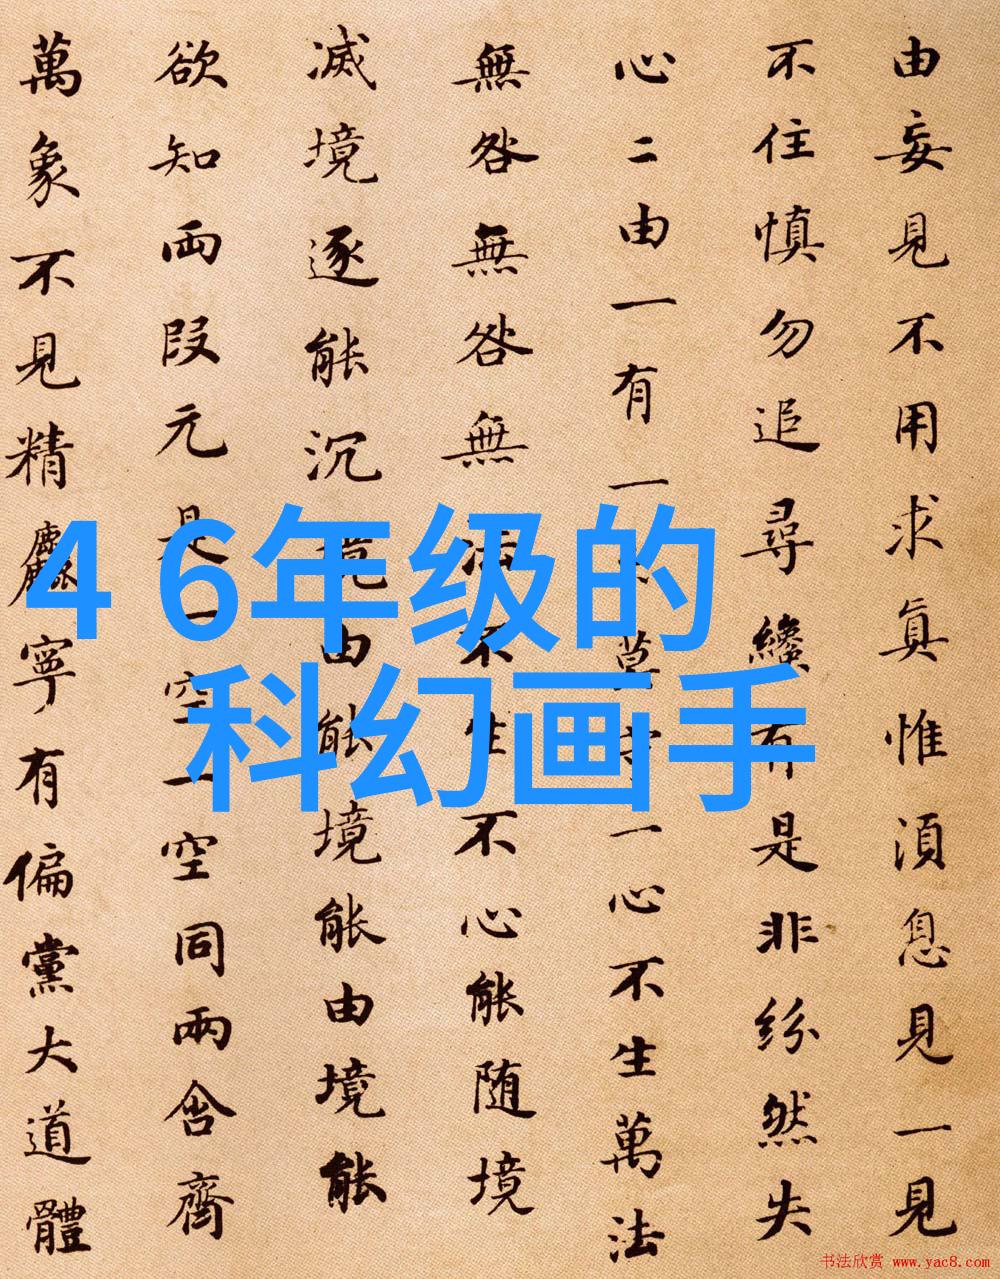 由妄見不用求眞惟湏息見一見
不住慎勿追尋纔有是非紛然失
心二由一有一莫守一心不生萬法
無咎無咎無法不生不心能随境
滅境逐能沉境由能境能由境能
欲知両段元是一空一空同兩含齊
萬象不見精麤寧有偏黨大道體
4 6年级的
科幻画手
书法欣赏 www.yac8.com